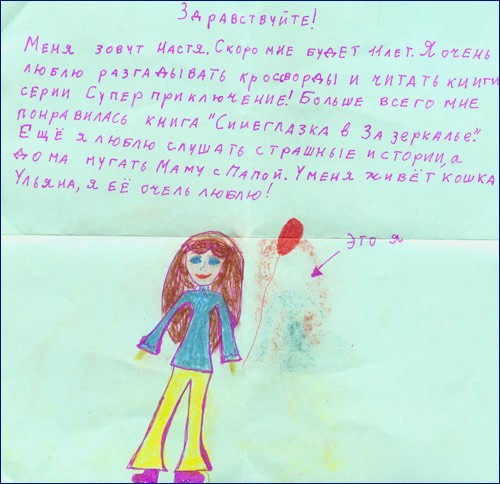 Здравствуйте!
Меня зовут Настя. Скоро мне будет 11 лет. Я очень
люблю разгадывать кроссворды и читать книги
серии Супер приключение! Больше всего мне
понравилась книга "Синеглазка в Зазеркалье".
Ещё я люблю слушать страшные истории, а
дома пугать Маму с Папой. У меня живёт кошка
Ульяна, я её очень люблю!
Это я